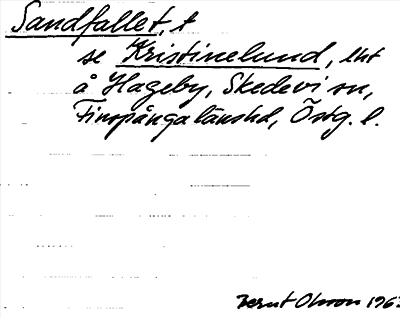 Sandfallet, t
se Kristinelund, lht
å Hageby, Skedevi sn,
Finspånga länshd, Östg. l.
Bernt Olsson